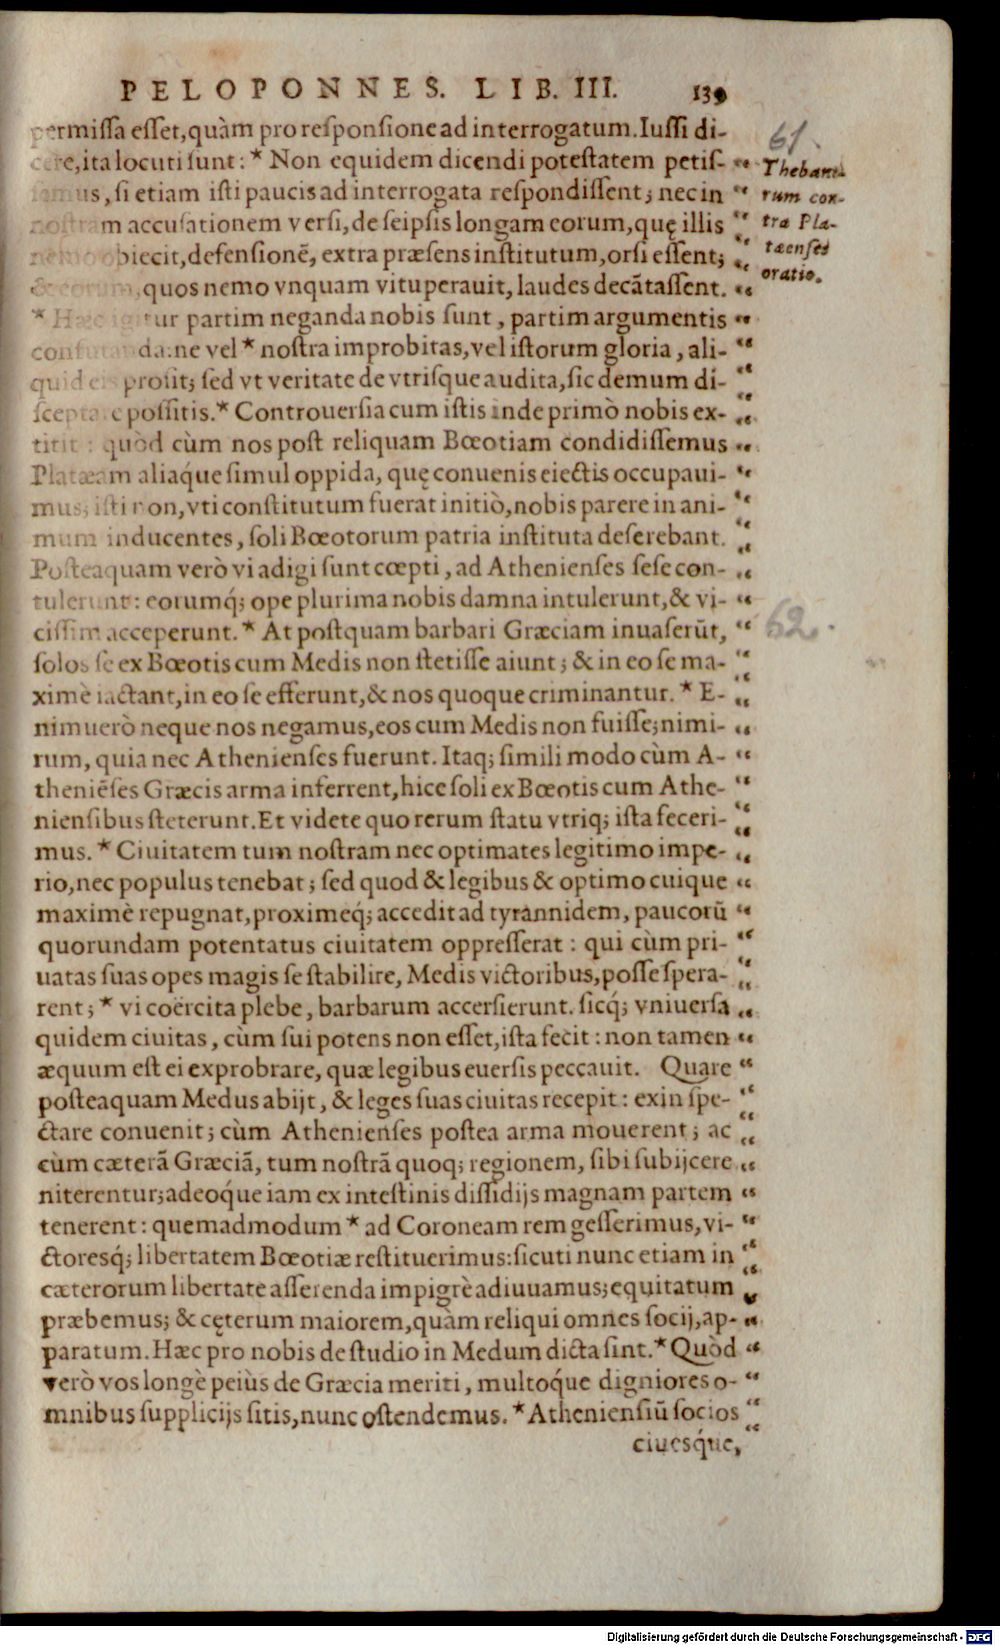 PELOPONNES. LIB. III. 139
permiſſa eſſet, quàm pro reſponſione ad interrogatum. Iuſſi di-
cere, ita locuti ſunt: * Non equidem dicendi poteſtatem petiſ-
ſemus, ſi etiam iſti paucis ad interrogata reſpondiſſent; nec in
noſtram accuſationem verſi, de ſeipſis longam eorum, quę illis
nemo obiecit, defenſionē, extra præſens inſtitutum, orſi eſſent;
& eorum, quos nemo vnquam vituperauit, laudes decātaſſent.
* Hæc igitur partim neganda nobis ſunt, partim argumentis
confutanda: ne vel * noſtra improbitas, vel iſtorum gloria, ali-
quid eis proſit; ſed vt veritate de vtriſque audita, ſic demum di-
ſceptare poſſitis. * Controuerſia cum iſtis inde primò nobis ex-
titit: quòd cùm nos poſt reliquam Bœotiam condidiſſemus
Platæam aliaq́ue ſimul oppida, quę conuenis eiectis occupaui-
mus; iſti non, vti conſtitutum fuerat initiò, nobis parere in ani-
mum inducentes, ſoli Bœotorum patria inſtituta deſerebant.
Poſteaquam verò vi adigi ſunt cœpti, ad Athenienſes ſeſe con-
tulerunt: eorumq́; ope plurima nobis damna intulerunt, & vi-
ciſſim acceperunt. * At poſtquam barbari Græciam inuaſerūt,
ſolos ſe ex Bœotis cum Medis non ſtetiſſe aiunt; & in eo ſe ma-
ximè iactant, in eo ſe efferunt, & nos quoque criminantur. * E-
nimuerò neque nos negamus, eos cum Medis non fuiſſe; nimi-
rum, quia nec Athenienſes fuerunt. Itaq; ſimili modo cùm A-
theniēſes Græcis arma inferrent, hice ſoli ex Bœotis cum Athe-
nienſibus ſteterunt. Et videte quo rerum ſtatu vtriq; iſta feceri-
mus. * Ciuitatem tum noſtram nec optimates legitimo impe-
rio, nec populus tenebat; ſed quod & legibus & optimo cuique
maximè repugnat, proximeq́; accedit ad tyrannidem, paucorū
quorundam potentatus ciuitatem oppreſſerat: qui cùm pri-
uatas ſuas opes magis ſe ſtabilire, Medis victoribus, poſſe ſpera-
rent; * vi coërcita plebe, barbarum accerſierunt. ſicq́; vniuerſa
quidem ciuitas, cùm ſui potens non eſſet, iſta fecit: non tamen
æquum eſt ei exprobrare, quæ legibus euerſis peccauit. Quare
poſteaquam Medus abijt, & leges ſuas ciuitas recepit: exin ſpe-
ctare conuenit; cùm Athenienſes poſtea arma mouerent; ac
cùm cæterā Græciā, tum noſtrā quoq; regionem, ſibi ſubijcere
niterentur; adeoq́ue iam ex inteſtinis diſſidijs magnam partem
tenerent: quemadmodum * ad Coroneam rem geſſerimus, vi-
ctoresq́; libertatem Bœotiæ reſtituerimus: ſicuti nunc etiam in
cæterorum libertate aſſerenda impigrè adiuuamus; equitatum
præbemus; & cęterum maiorem, quàm reliqui omnes ſocij, ap-
paratum. Hæc pro nobis de ſtudio in Medum dicta ſint. * Quòd
verò vos longè peiùs de Græcia meriti, multoq́ue digniores o-
mnibus ſupplicijs ſitis, nunc oſtendemus. * Athenienſiū ſocios
ciuesq́ue,
61.
Thebano-
rum con-
tra Pla-
taenſes
oratio.
62.
Digitalisierung gefördert durch die Deutsche Forschungsgemeinschaft - DFG